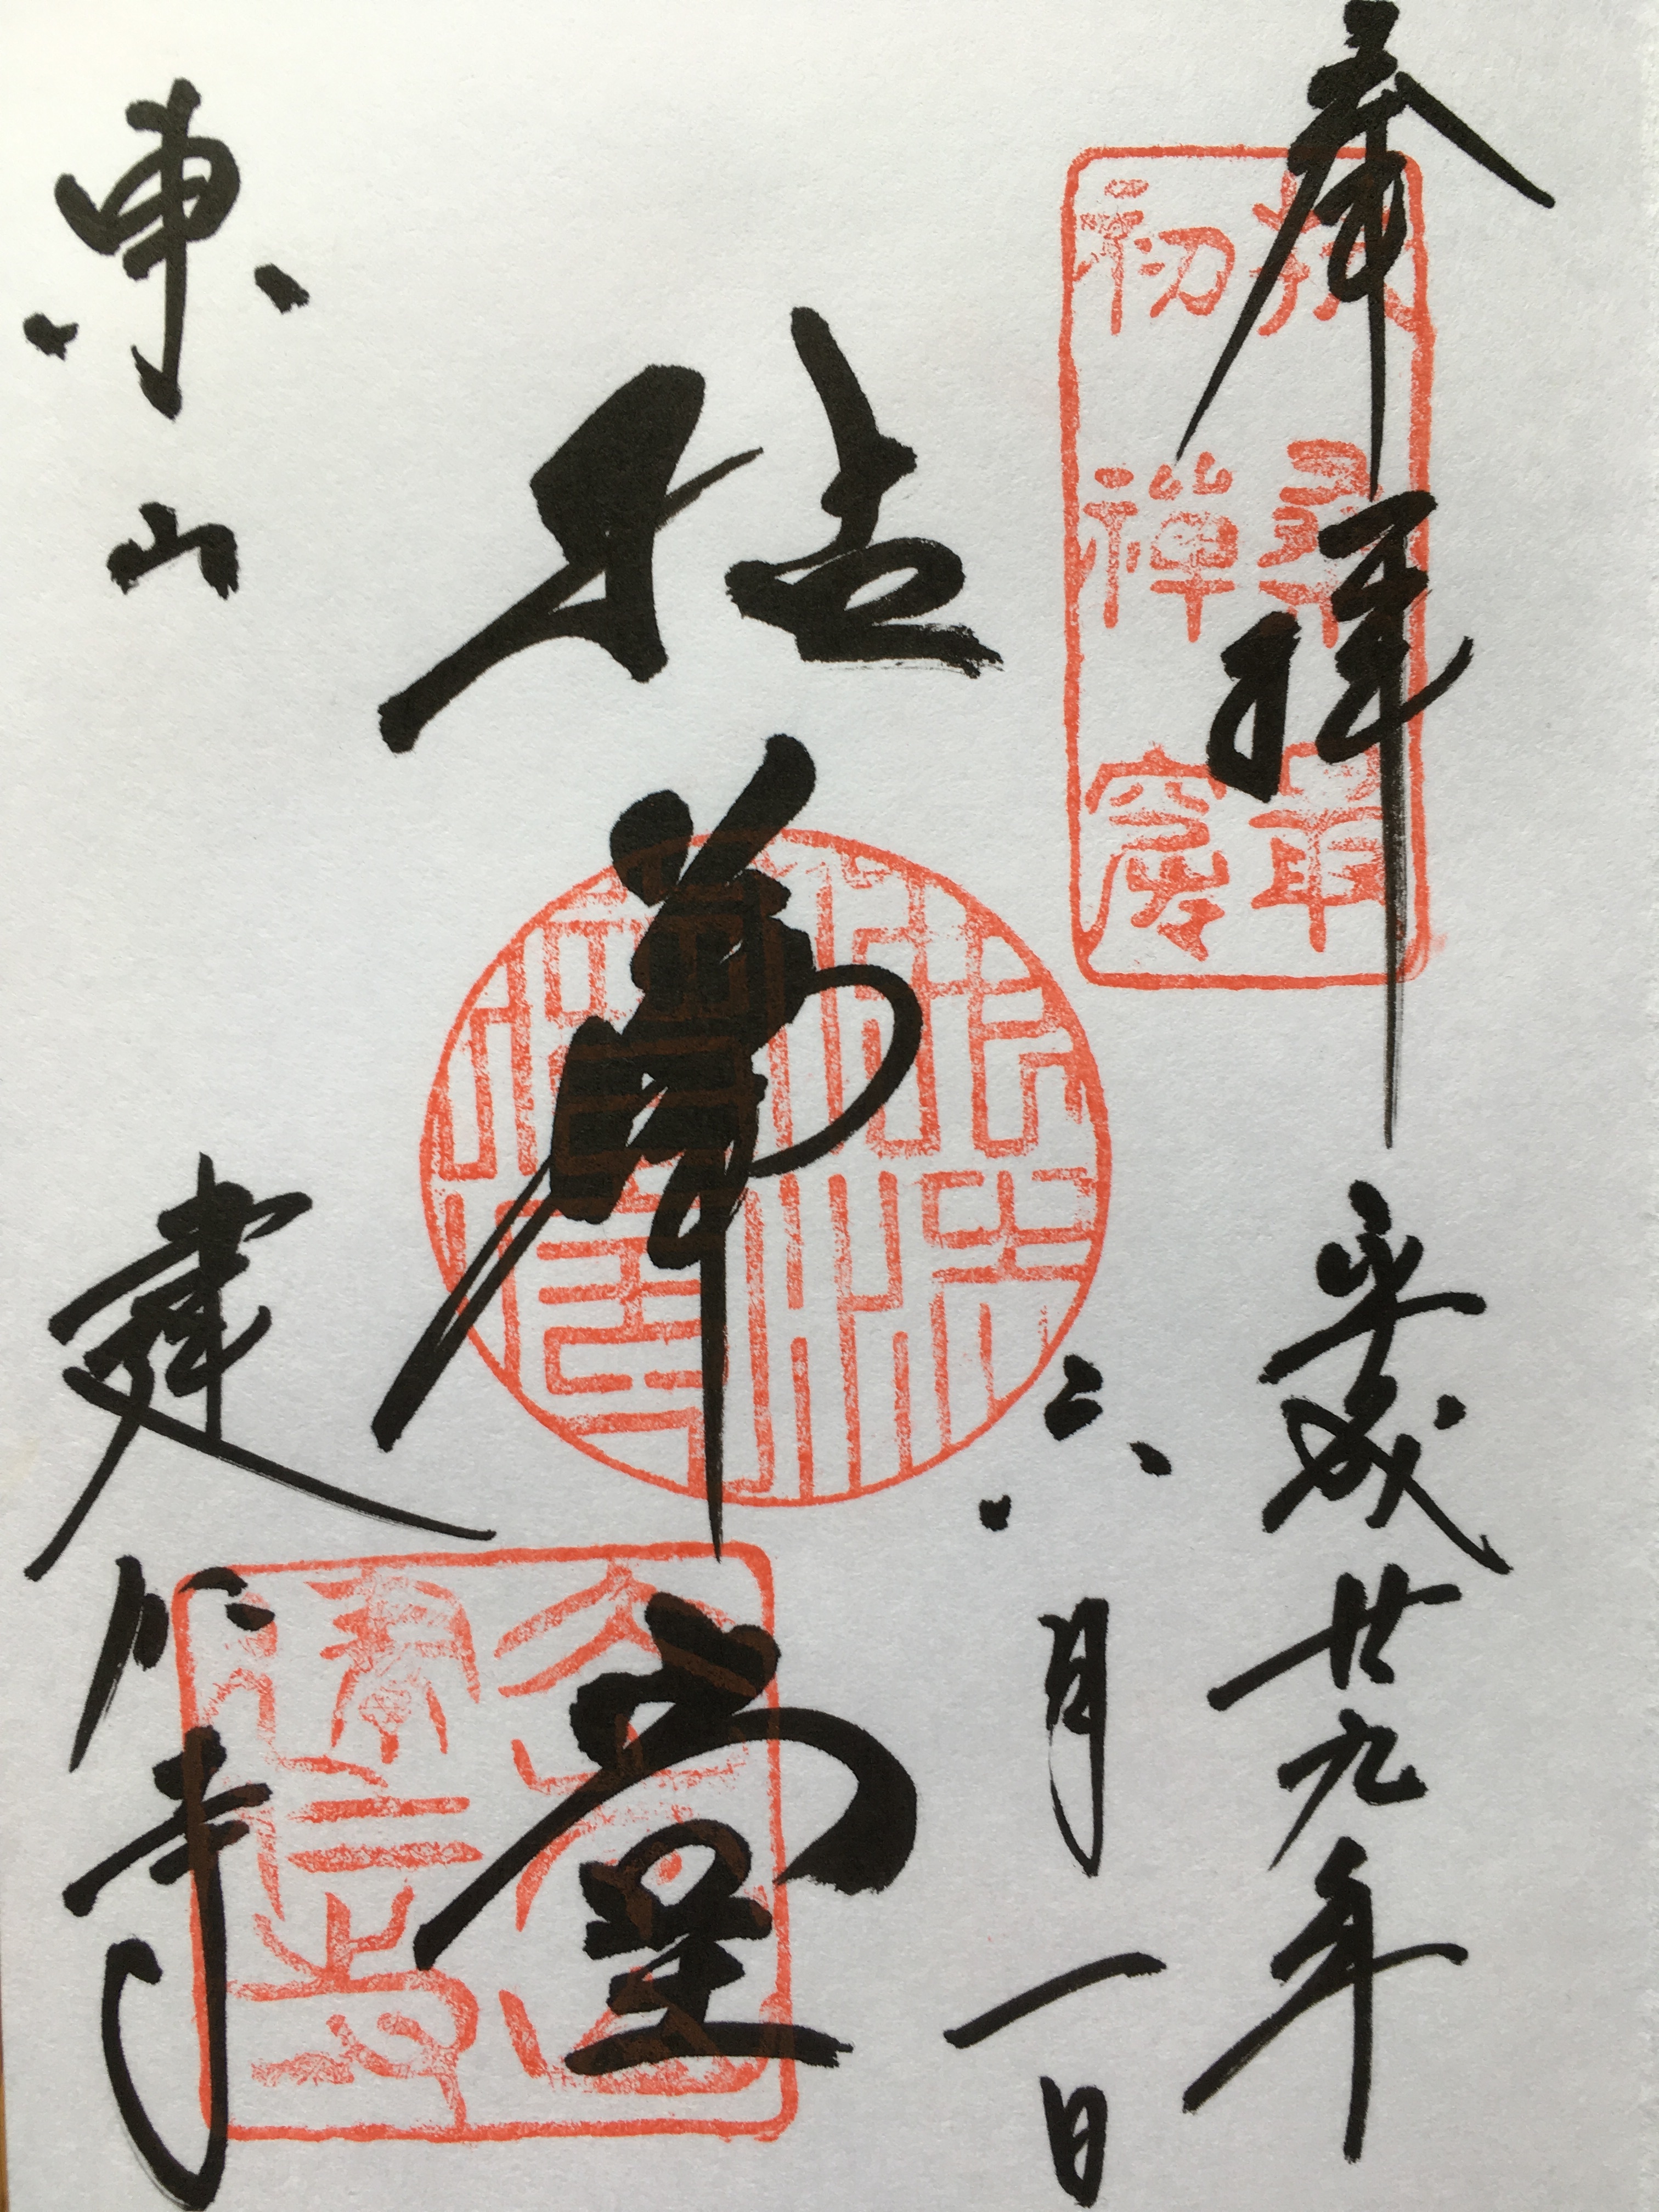 奉拝
平成廿九年
六月一日
扶桑最
初禅窟
拈華堂
東山
建仁寺